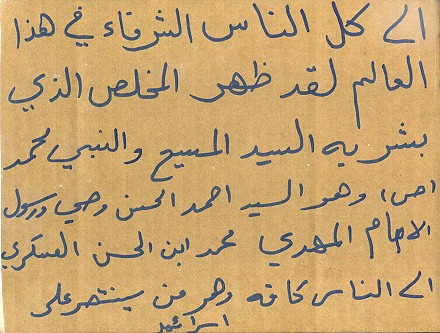 الى كل الناس الشرفاء في هذا
العالم لقد ظهر المخلص الذي
بشر به السيد المسيح والنبي محمد
(ص) وهو السيد احمد الحسن وصي ورسول
الامام المهدي محمد ابن الحسن العسكري
الى الناس كافه وهو من ينتصر على
اسرائيل